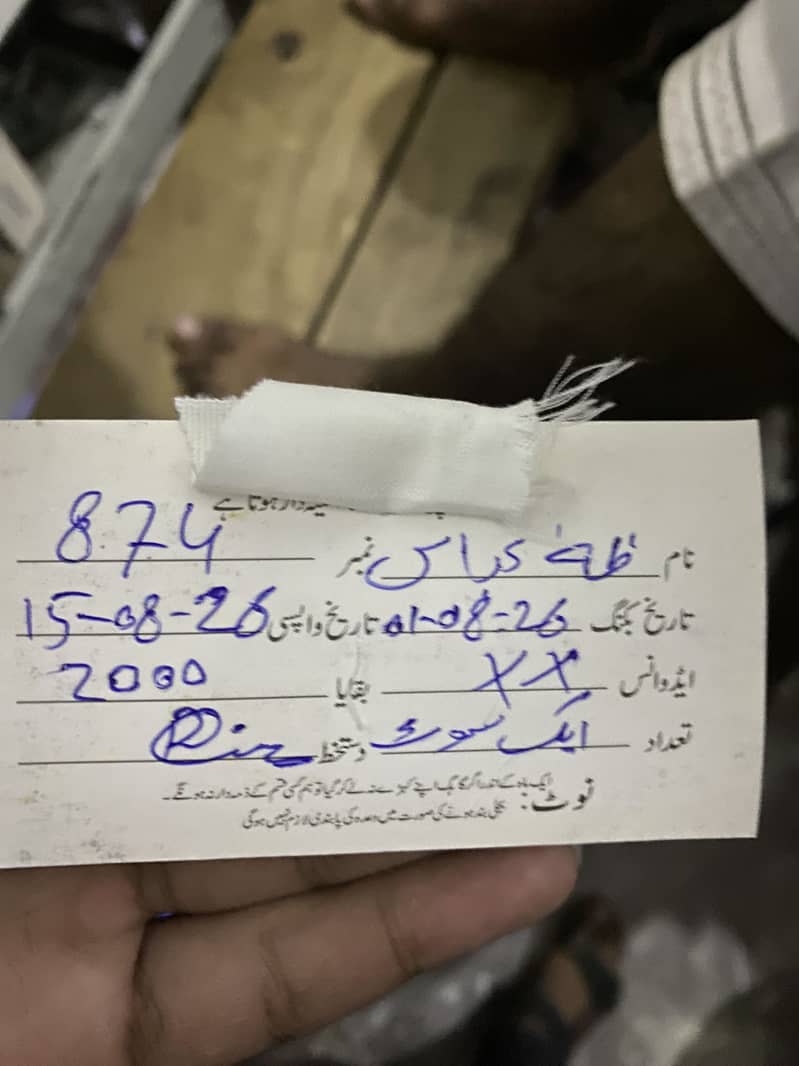 ہوتا ہے
نام طہٰ عباس نمبر 874
تاریخ بکنگ 01-08-26 تاریخ واپسی 15-08-26
ایڈوانس XX بقایا 2000
تعداد ایک سوٹ دستخط
نوٹ: ایک ماہ کے اندر اگر گاہک اپنے کپڑے نہ لے کر گیا تو ہم کسی قسم کے ذمہ دار نہ ہونگے۔
بجلی بند ہونے کی صورت میں وعدہ کی پابندی لازم نہیں ہوگی